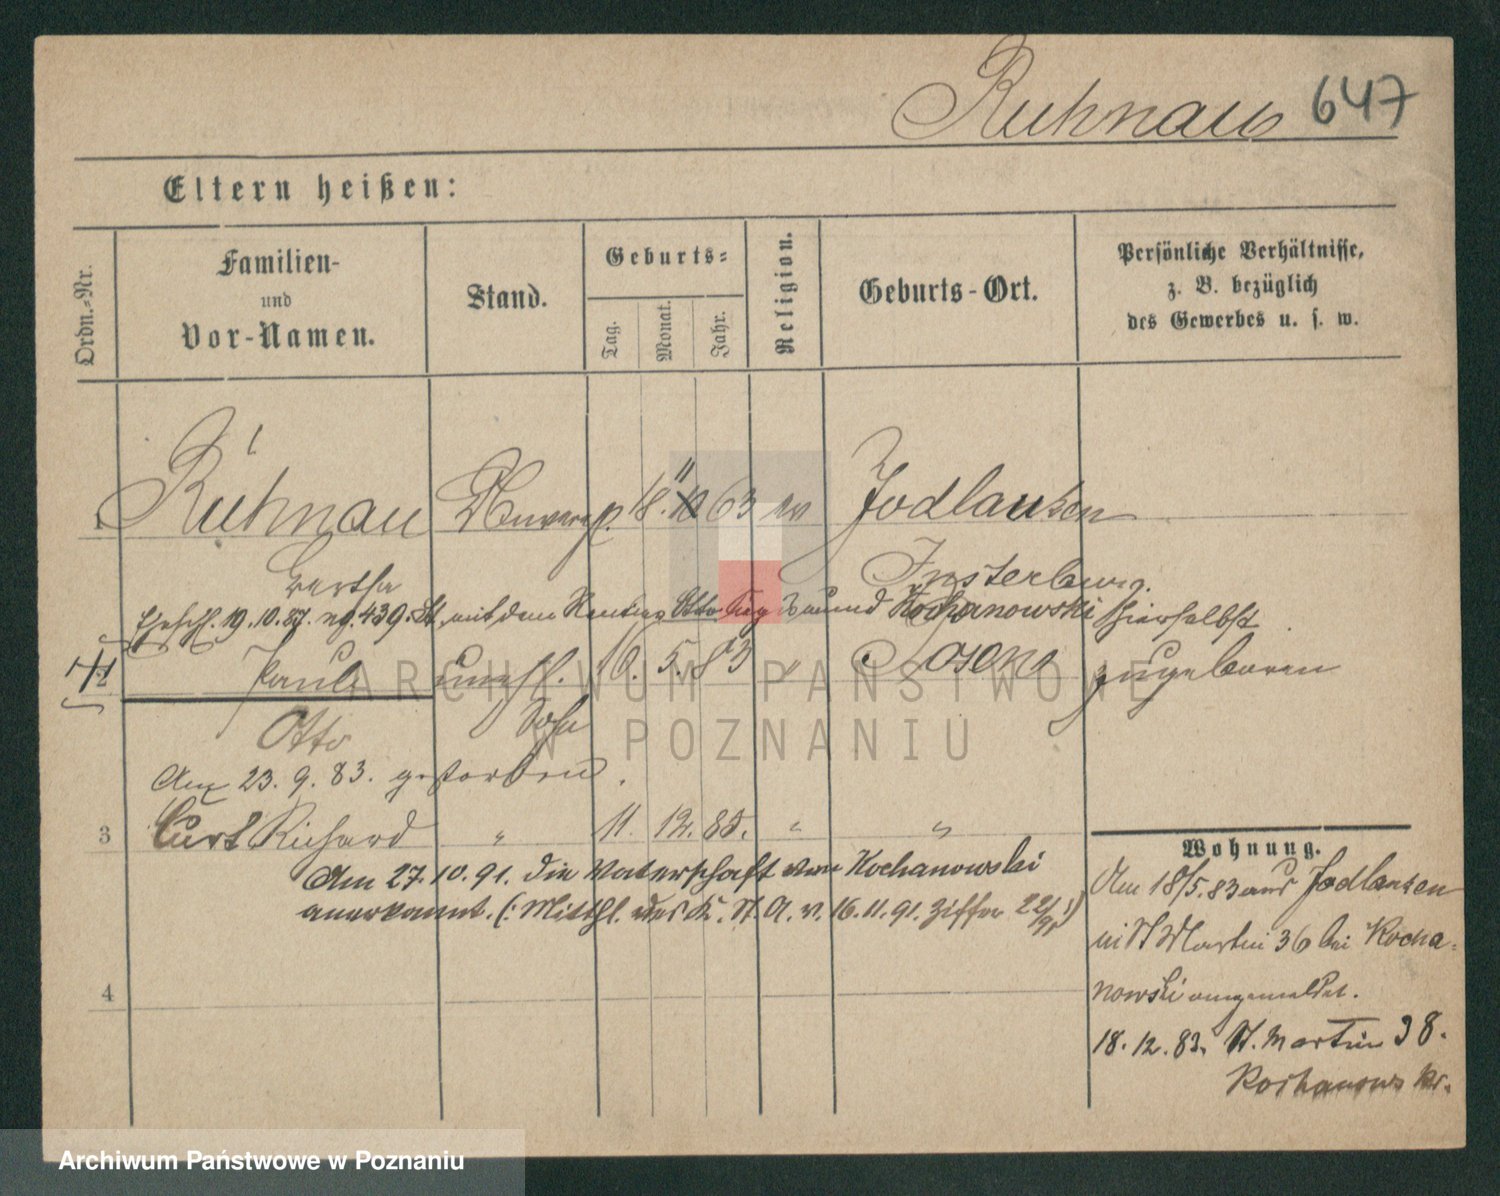 Ruhnau 647
Eltern heißen:
Ordn.-Nr.
Familien-
und
Vor-Namen.
Stand.
Geburts-
Tag.
Monat.
Jahr.
Religion.
Geburts-Ort.
Persönliche Verhältnisse,
z. B. bezüglich
des Gewerbes u. s. w.
1 Ruhnau 18. 11 63 ev Jodlauken
Bertha Insterburg.
Ehschl. 19.10.87. No. 439. St. mit dem Rentier Otto Kochanowski hierselbst
2 Paul unehl. 10. 5. 83 " Posen zugeboren
Otto Sohn
Am 23. 9. 83. gestorben.
3 Curt Richard " 11. 12. 85. " "
Am 27.10.91. die Vaterschaft von Kochanowski
anerkannt. (: Mitthl. des K. St. A. v. 16.11.91. Ziffer
4
Wohnung.
Am 18/5.83 aus Jodlauken
in St Martin 36 bei Kocha-
nowski angemeldet.
18.12.83. St. Martin 38.
Kochanowski.
ARCHIWUM PAŃSTWOWE
W POZNANIU
Archiwum Państwowe w Poznaniu